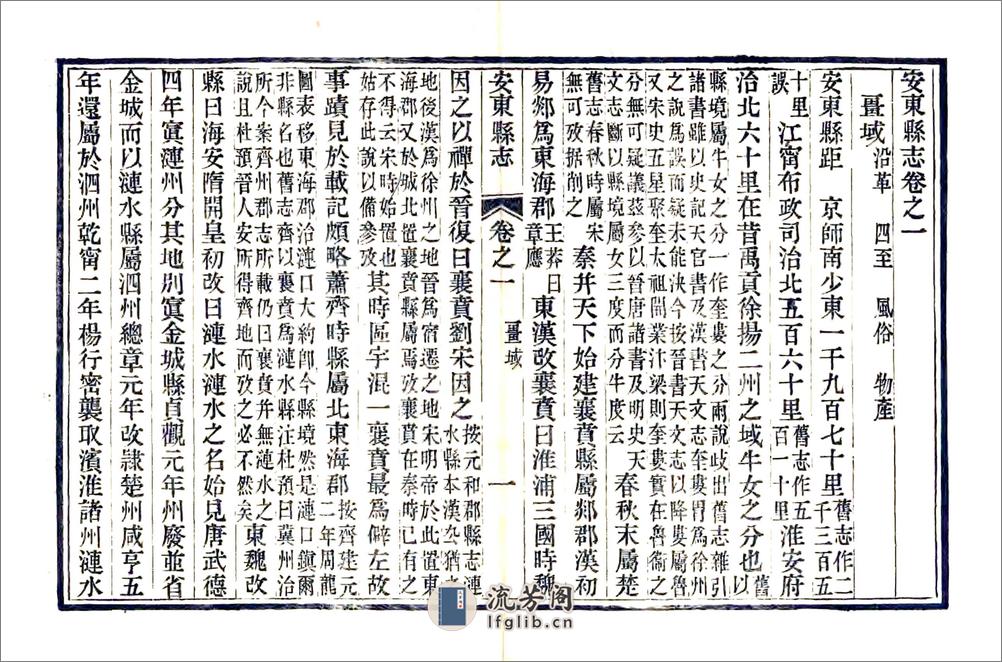 安東縣志卷之一
畺域 沿革 四至 風俗 物產
安東縣距 京師南少東一千九百七十里舊志作二千三百五
十里誤 江寧布政司治北五百六十里舊志作五百一十里淮安府
治北六十里在昔禹貢徐揚二州之域牛女之分也舊以
縣境屬牛女之分一作奎婁之分兩說歧出舊志雜引
諸書雖以史記天官書及漢書天文志奎婁胃爲徐州
之說爲誤而疑未能決今按晉書天文志以降婁屬魯
又宋史五星聚奎太祖開業汴梁則奎婁實在魯衞之
分無可疑議茲參以晉唐諸書及明史天文志斷以縣境屬女三度而分牛度云 春秋末屬楚
舊志春秋時屬宋無可攷據削之 秦并天下始建襄賁縣屬郯郡漢初
易郯爲東海郡王莽曰章應 東漢改襄賁曰淮浦三國時魏
安東縣志 卷之一 畺域 一
因之以禪於晉復曰襄賁劉宋因之按元和郡縣志漣水縣本漢厹猶
地後漢爲徐州之地晉爲宿遷之地宋明帝於此置東
海郡又於城北置襄賁縣屬焉攷襄賁在秦時已有之
不得云宋時始置也姑存此說以備參攷 其時區宇混一襄賁最爲僻左故
事蹟見於載記頗略蕭齊時縣屬北東海郡按齊建元二年周龍
圖表移東海郡治漣口大約卽今縣境然是漣口鎭爾
非縣名也舊志齊以襄賁爲漣水縣注杜預曰冀州治
所今案齊州郡志所載仍曰襄賁并無漣水之說且杜預晉人安所得齊地而攷之必不然矣 東魏改
縣曰海安隋開皇初改曰漣水漣水之名始見唐武德
四年寘漣州分其地別寘金城縣貞觀元年州廢並省
金城而以漣水縣屬泗州總章元年改隸楚州咸亨五
年還屬於泗州乾甯二年楊行密襲取濱淮諸州漣水
流芳阁
lfglib.cn